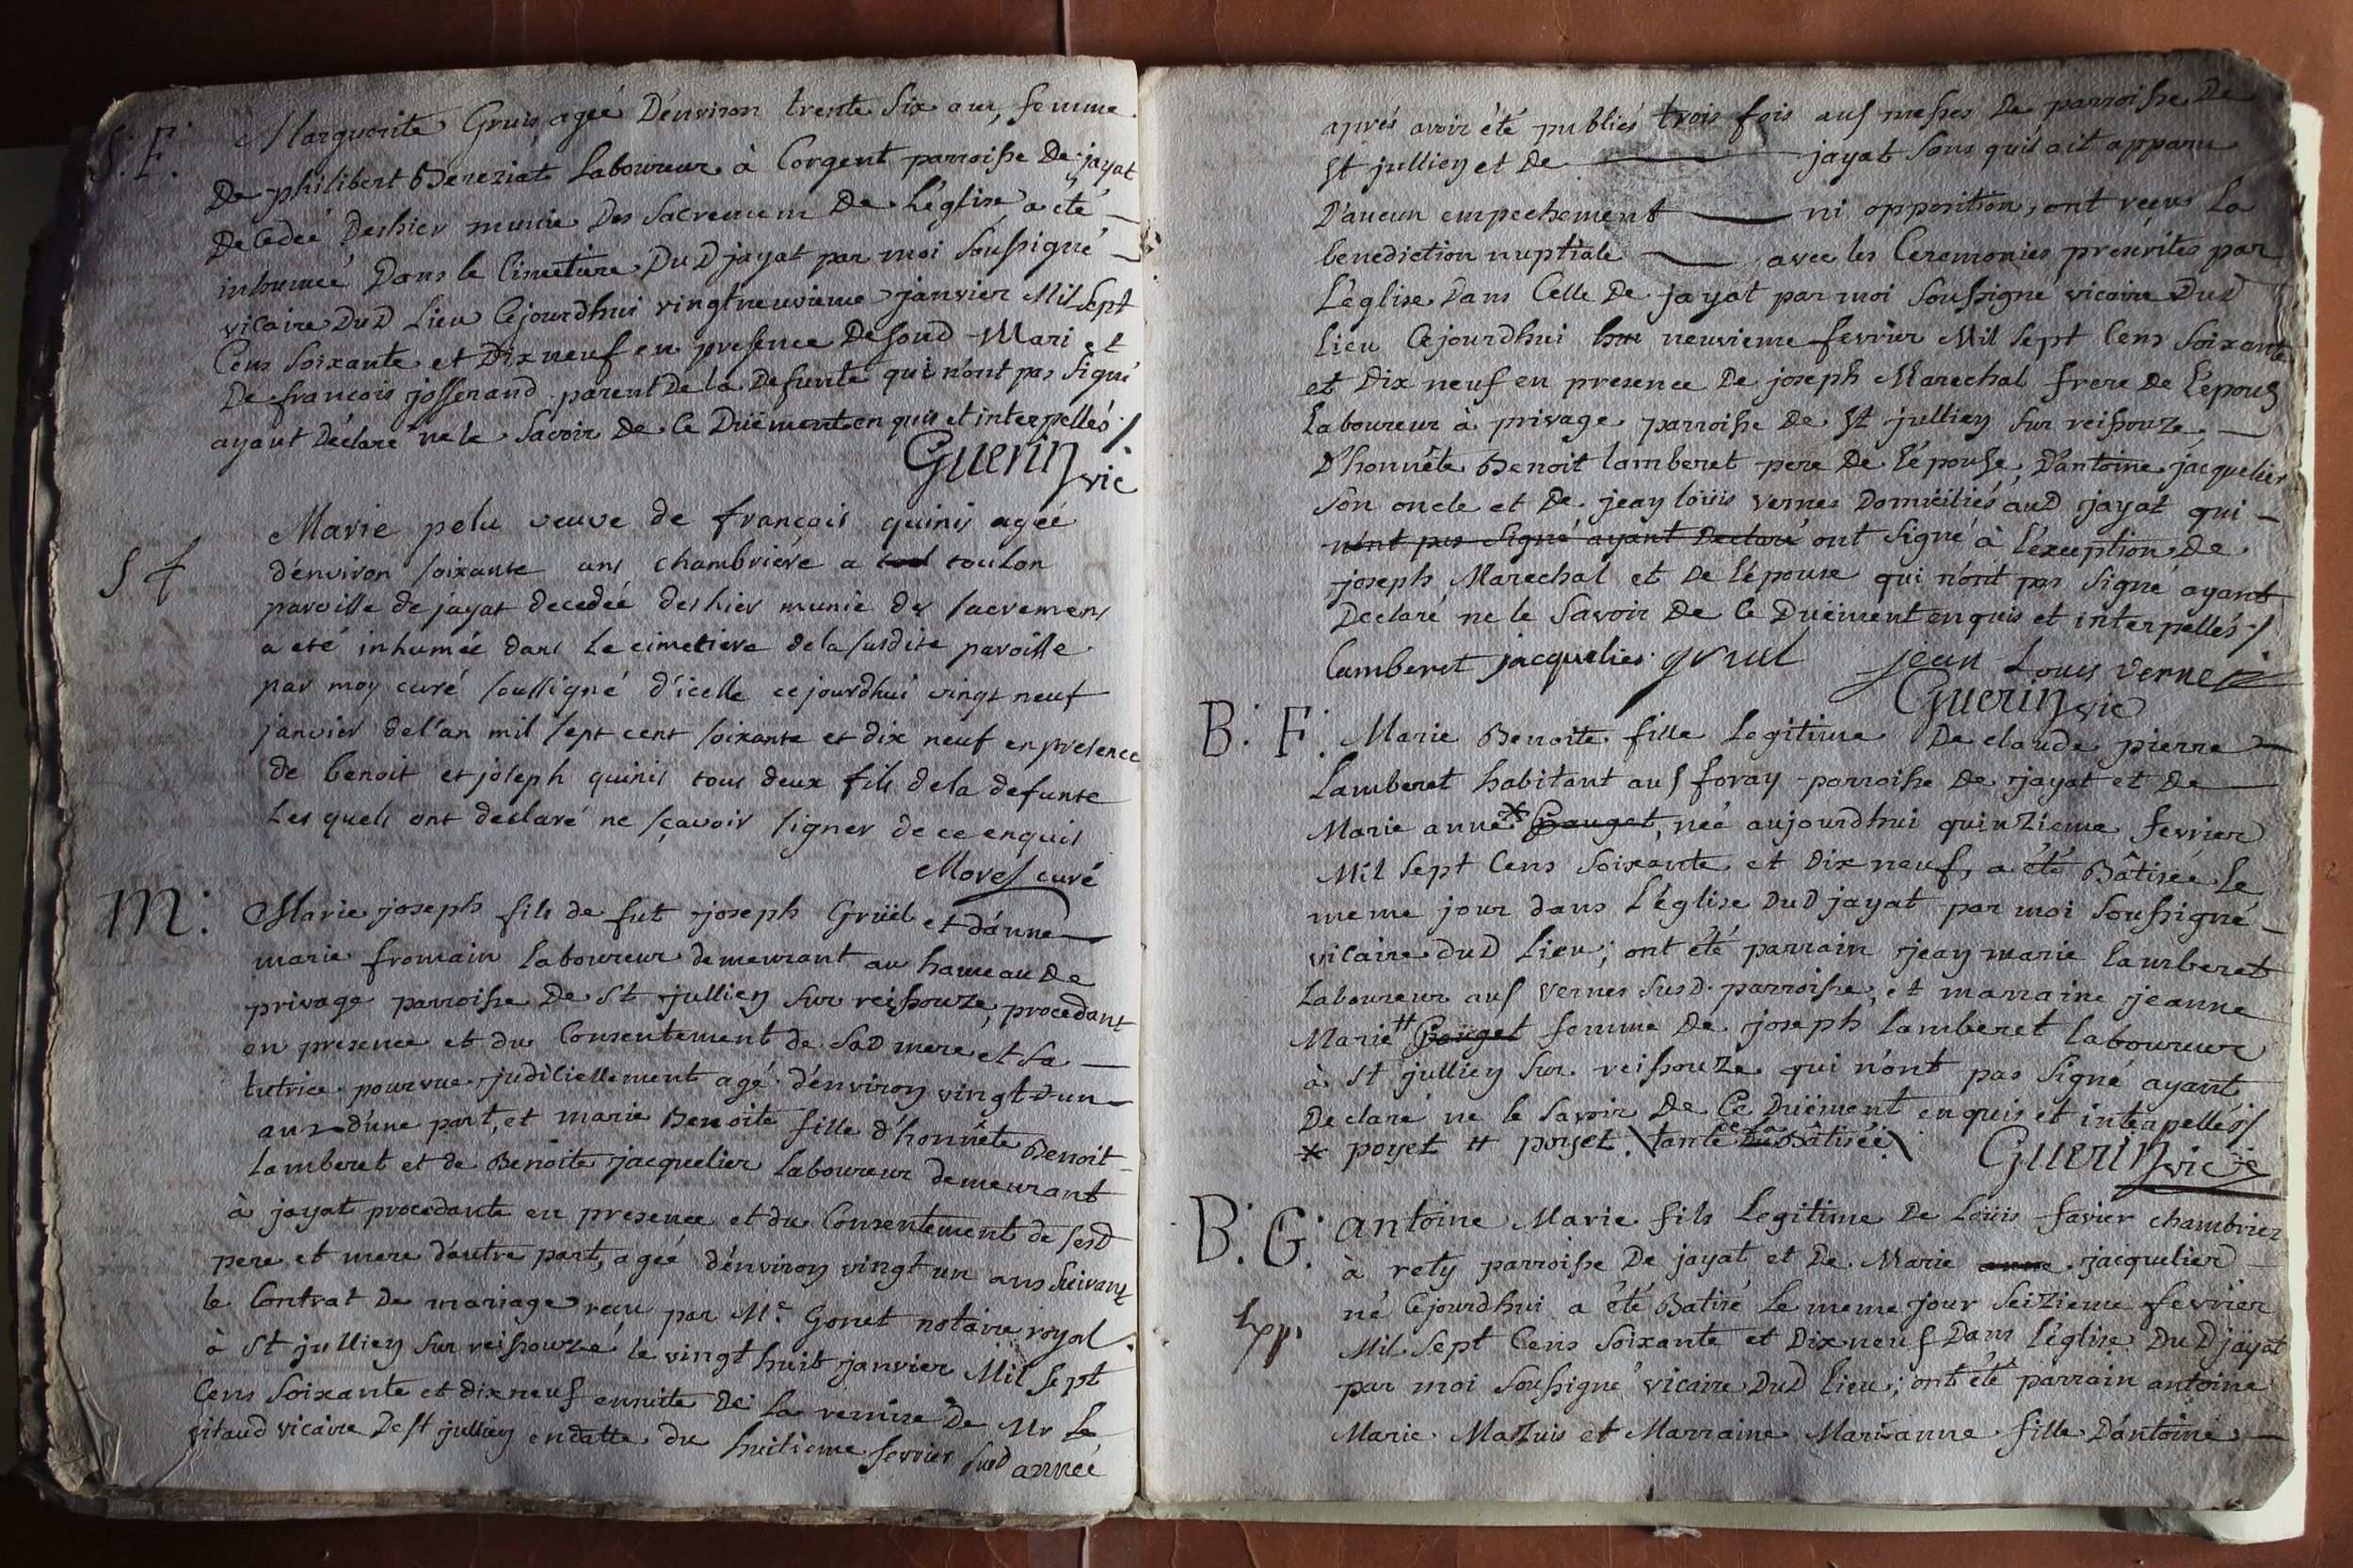 S: F: Marguerite Gruis agée D'environ trente Six ans, femme
De philibert Bereziat Laboureur à Corgent parroisse De jayat
Décedée Deshier munie Des Sacremens De L'église a été
inhumée Dans le Cimetiere DuD jayat par moi Soussigné
vicaire DuD Lieu Cejourdhui vingtneuvieme janvier Mil Sept
Cens Soixante et Dixneuf en presence DesouD Mari et
De francois josserand parent De la Defunte qui n'ont pas Signé
ayant Déclaré ne le Savoir De Ce Düement enquis et interpellés ./
Guerin vic
S f Marie pelu veuve de françois quinis agée
d'environ soixante ans chambriére a toul toulon
paroisse de jayat decedée deshier munie des sacremens
a eté inhumée dans Le cimetiere de la susdite paroisse
par moy curé soussigné d'icelle cejourdhui vingt neuf
janvier de l'an mil sept cent soixante et dix neuf en presence
de benoit et joseph quinis tous deux fils de la defunte
Les quels ont declaré ne sçavoir signer de ce enquis
Morel curé
M: Marie joseph fils de fut joseph Grüel et d'anne
marie fromain Laboureur demeurant au hameau De
privage parroisse De St jullien Sur reissouze, procedant
en presence et du Consentement de SaD mere et Sa
tutrice pourvue judiciellement agé d'environ vingt D'un
ans d'une part, et marie Benoite fille d'honnête Benoit
Lamberet et de Benoite jacquelier Laboureur demeurant
à jayat procedante en presence et du Consentement de sesD
pere et mere d'autre part, agée d'environ vingt un ans Suivant
le Contrat De mariage recu par Me Gonet notaire royal
à St jullien Sur reissouze le vingt huit janvier Mil Sept
Cens Soixante et dixneuf ensuite De La remise De Mr Le
vicaire De St jullien en datte du huitieme fevrier susD année
aprés avoir été publiés trois fois aus messes De parroisse De
St jullien et De jayat Sans qu'il ait apparu
D'aucun empechement ni opposition, ont recu La
benediction nuptiale avec les Ceremonies prescrites par
L'église Dans Celle De jayat par moi Soussigné vicaire DuD
Lieu Cejourdhui hui neuvieme fevrier Mil Sept Cens Soixante
et Dix neuf en presence De joseph Marechal frere De L'epous
Laboureur à privage parroisse De St jullien Sur reissouze,
D'honnête Benoit lamberet pere De L'épouse, D'antoine jacquelier
Son oncle et De jean loüis vernes Domiciliés auD jayat qui
n'ont pas Signé ayant Declaré ont Signé à L'éxception De
joseph Marechal et De L'épouse qui n'ont pas Signé ayant
Declaré ne le Savoir De Ce Düement enquis et interpellés ./
Lamberet jacquelier gruel jean Louis vernes
Guerin vic
B: F: Marie Benoite fille Legitime De claude pierre
Lamberet habitant aus foray parroisse De jayat et De
Marie anne * Pauget, née aujourdhui quinzieme fevrier
Mil Sept Cens Soixante et Dix neuf, a été Bâtisée Le
meme jour dans L'église DuD jayat par moi Soussigné
vicaire DuD Lieu; ont été parrain jean marie Lamberet
Laboureur aus Vernes SusD. parroisse, et marraine jeanne
Marie # Pauget femme De joseph Lamberet Laboureur
à St jullien Sur reissouze qui n'ont pas Signé ayant
Declaré ne le Savoir De Ce Düement enquis et interpellés ./
* poyet # poyet. \tante de La Du Bâtisée\ Guerin vic
B: G: antoine Marie fils Legitime De Loüis favier chambrier
à rety parroisse De jayat et De Marie anne jacquelier
né Cejourdhui a été Batisé Le meme jour Seizieme fevrier
Mil Sept Cens Soixante et Dixneuf Dans L'église DuD jayat
par moi Soussigné vicaire DuD Lieu; ont été parrain antoine
Marie Mazuis et Marraine Marianne fille D'antoine